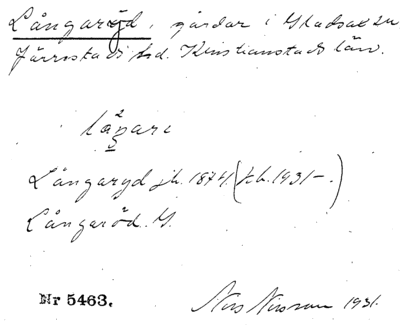 Långaröd, gårdar i Gladsax sn
Järrestads hd. Kristianstads län.
Långaryd jb. 1874 (kb. 1931-.)
Långaröd. G.
Nr 5463.
Nils Nilsson 1931.